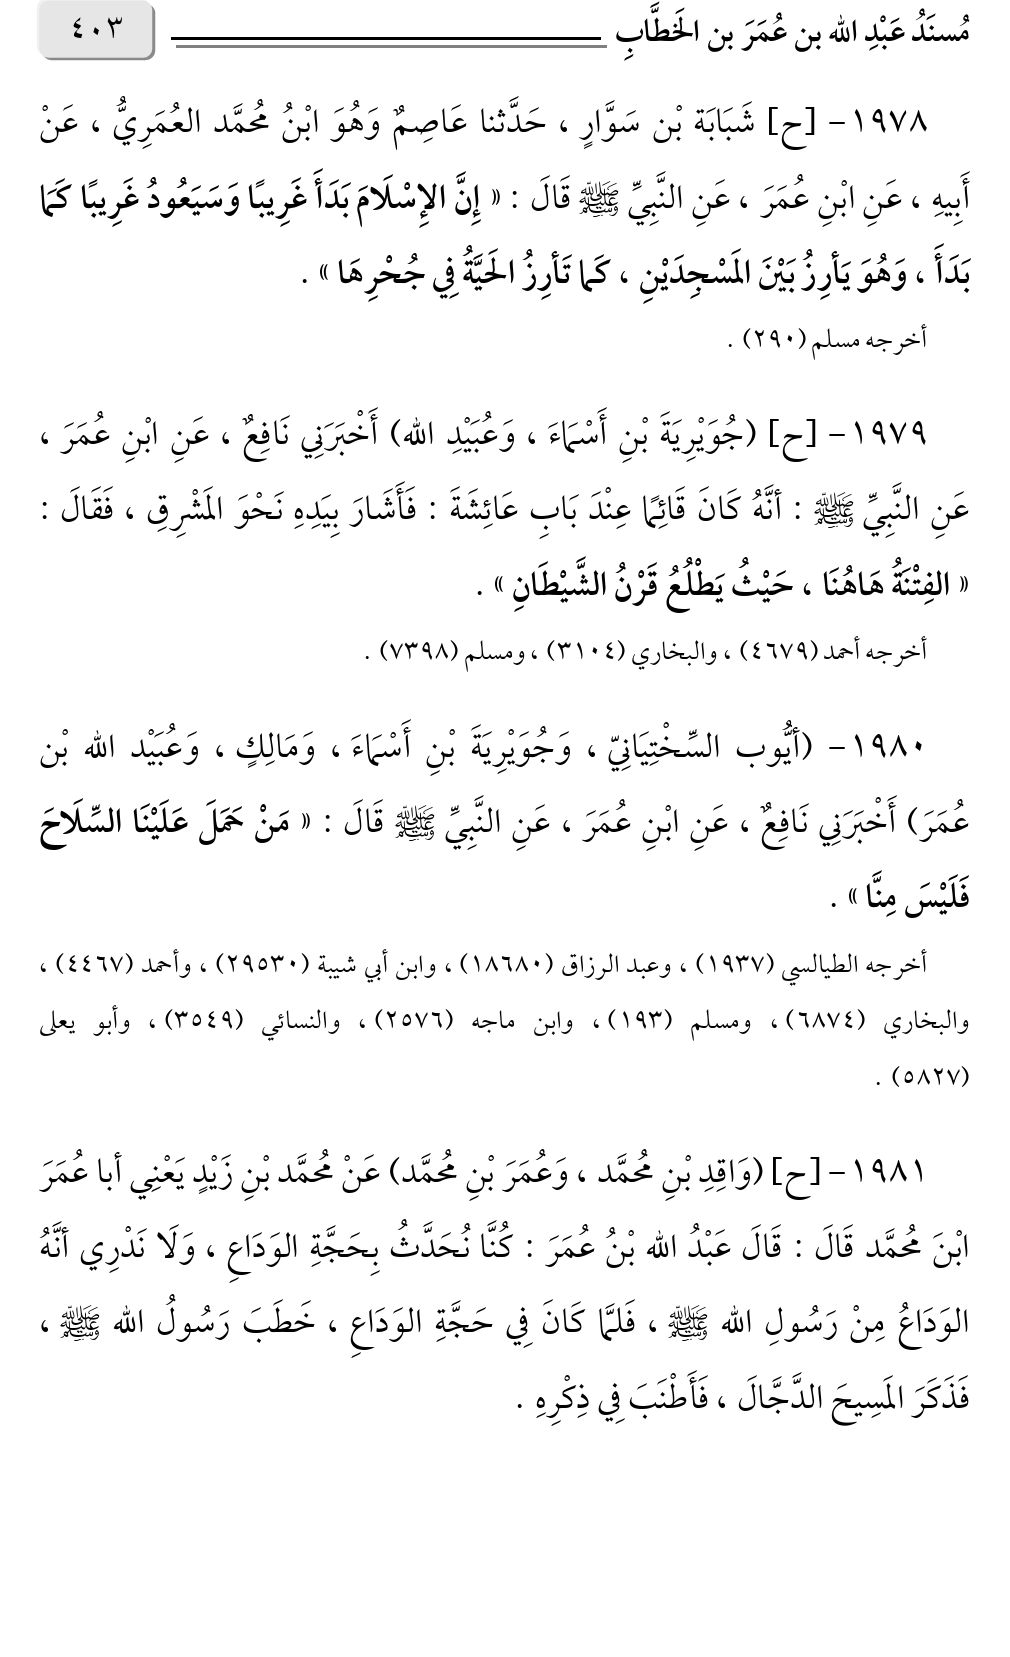 مُسنَدُ عَبْدِ الله بن عُمَرَ بن الخَطَّابِ ٤٠٣
١٩٧٨- [ح] شَبَابَة بْن سَوَّارٍ ، حَدَّثنا عَاصِمٌ وَهُوَ ابْنُ مُحمَّد العُمَرِيُّ ، عَنْ
أَبِيهِ ، عَنِ ابْنِ عُمَرَ ، عَنِ النَّبِيِّ ﷺ قَالَ : « إِنَّ الإِسْلَامَ بَدَأَ غَرِيبًا وَسَيَعُودُ غَرِيبًا كَمَا
بَدَأَ ، وَهُوَ يَأرِزُ بَيْنَ المَسْجِدَيْنِ ، كَما تَأرِزُ الحَيَّةُ فِي جُحْرِهَا » .
أخرجه مسلم (٢٩٠) .
١٩٧٩- [ح] (جُوَيْرِيَةَ بْنِ أَسْمَاءَ ، وَعُبَيْدِ الله) أَخْبَرَنِي نَافِعٌ ، عَنِ ابْنِ عُمَرَ ،
عَنِ النَّبِيِّ ﷺ : أنَّهُ كَانَ قَائِمًا عِنْدَ بَابِ عَائِشَةَ : فَأَشَارَ بِيَدِهِ نَحْوَ المَشْرِقِ ، فَقَالَ :
« الفِتْنَةُ هَاهُنَا ، حَيْثُ يَطْلُعُ قَرْنُ الشَّيْطَانِ » .
أخرجه أحمد (٤٦٧٩) ، والبخاري (٣١٠٤) ، ومسلم (٧٣٩٨) .
١٩٨٠- (أيُّوب السِّخْتِيَانِيّ ، وَجُوَيْرِيَةَ بْنِ أَسْمَاءَ ، وَمَالِكٍ ، وَعُبَيْد الله بْن
عُمَرَ) أَخْبَرَنِي نَافِعٌ ، عَنِ ابْنِ عُمَرَ ، عَنِ النَّبِيِّ ﷺ قَالَ : « مَنْ حَمَلَ عَلَيْنَا السِّلَاحَ
فَلَيْسَ مِنَّا » .
أخرجه الطيالسي (١٩٣٧) ، وعبد الرزاق (١٨٦٨٠) ، وابن أبي شيبة (٢٩٥٣٠) ، وأحمد (٤٤٦٧) ،
والبخاري (٦٨٧٤) ، ومسلم (١٩٣) ، وابن ماجه (٢٥٧٦) ، والنسائي (٣٥٤٩) ، وأبو يعلى
(٥٨٢٧) .
١٩٨١- [ح] (وَاقِدِ بْنِ مُحمَّد ، وَعُمَرَ بْنِ مُحمَّد) عَنْ مُحمَّد بْنِ زَيْدٍ يَعْنِي أبا عُمَرَ
ابْنَ مُحمَّد قَالَ : قَالَ عَبْدُ الله بْنُ عُمَرَ : كُنَّا نُحَدَّثُ بِحَجَّةِ الوَدَاعِ ، وَلَا نَدْرِي أنَّهُ
الوَدَاعُ مِنْ رَسُولِ الله ﷺ ، فَلمَّا كَانَ فِي حَجَّةِ الوَدَاعِ ، خَطَبَ رَسُولُ الله ﷺ ،
فَذَكَرَ المَسِيحَ الدَّجَّالَ ، فَأَطْنَبَ فِي ذِكْرِهِ .